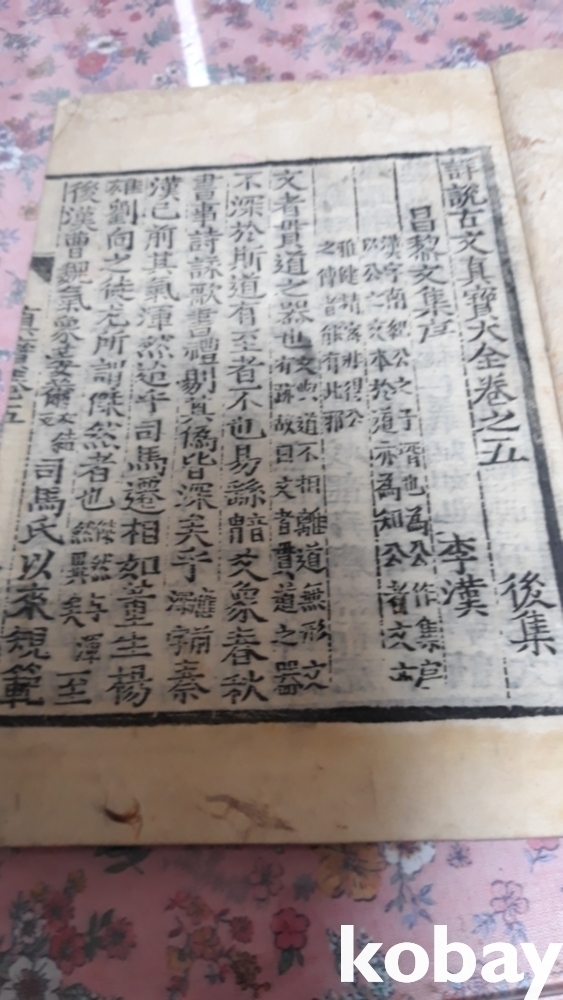 詳說古文眞寶大全卷之五
後集
昌黎文集序 李漢
漢字南紀公之子壻也爲公作集序
以公之文本於道亦爲知公者文亦
雅健精
之傳者能有此耶
文者貫道之器也 文與道不相離道無形文
有跡故曰文者貫道之器
不深於斯道有至者不也易繇爻象春秋
書事詩詠歌書禮剔其僞皆深矣乎 秦
漢已前其氣渾然迨乎司馬遷相如董生楊
雄劉向之徒尤所謂傑然者也 傑然與渾
然異矣 至
後漢曹魏氣象萎薾 司馬氏以來規範